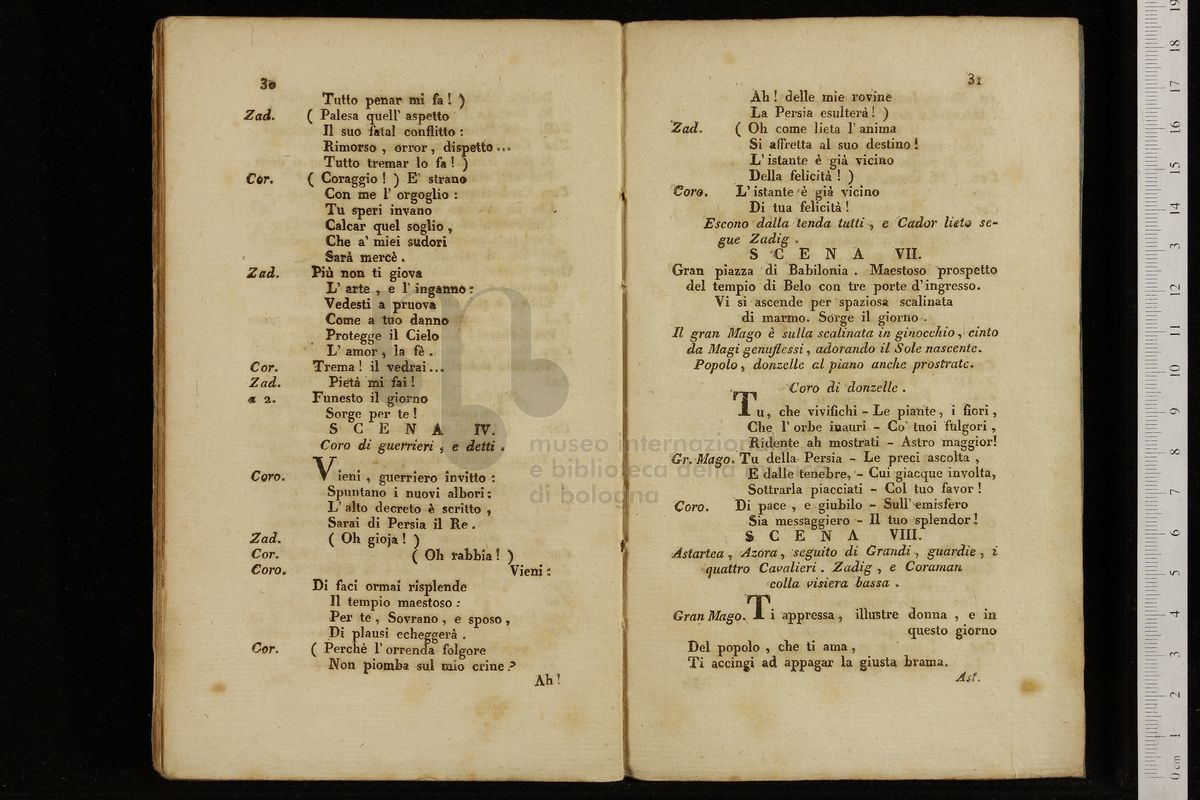 30
Tutto penar mi fa ! )
Zad. ( Palesa quell' aspetto
Il suo fatal conflitto :
Rimorso , orror , dispetto ...
Tutto tremar lo fa ! )
Cor. ( Coraggio ! ) E' strano
Con me l' orgoglio :
Tu speri invano
Calcar quel soglio ,
Che a' miei sudori
Sarà mercè .
Zad. Più non ti giova
L' arte , e l' inganno :
Vedesti a pruova
Come a tuo danno
Protegge il Cielo
L' amor , la fè .
Cor. Trema ! il vedrai ...
Zad. Pietà mi fai !
a 2. Funesto il giorno
Sorge per te !
S C E N A IV.
Coro di guerrieri , e detti .
Coro. Vieni , guerriero invitto :
Spuntano i nuovi albori :
L' alto decreto è scritto ,
Sarai di Persia il Re .
Zad. ( Oh gioja ! )
Cor. ( Oh rabbia ! )
Coro. Vieni :
Di faci ormai risplende
Il tempio maestoso :
Per te , Sovrano , e sposo ,
Di plausi echeggerà .
Cor. ( Perchè l' orrenda folgore
Non piomba sul mio crine ?
Ah !
31
Ah ! delle mie rovine
La Persia esulterà ! )
Zad. ( Oh come lieta l' anima
Si affretta al suo destino !
L' istante è già vicino
Della felicità ! )
Coro. L' istante è già vicino
Di tua felicità !
Escono dalla tenda tutti , e Cador lieto se-
gue Zadig .
S C E N A VII.
Gran piazza di Babilonia . Maestoso prospetto
del tempio di Belo con tre porte d' ingresso.
Vi si ascende per spaziosa scalinata
di marmo. Sorge il giorno .
Il gran Mago è sulla scalinata in ginocchio , cinto
da Magi genuflessi , adorando il Sole nascente.
Popolo , donzelle al piano anche prostrate.
Coro di donzelle .
Tu, che vivifichi - Le piante , i fiori ,
Che l' orbe inauri - Co' tuoi fulgori ,
Ridente ah mostrati - Astro maggior!
Gr. Mago. Tu della Persia - Le preci ascolta ,
E dalle tenebre, - Cui giacque involta,
Sottrarla piacciati - Col tuo favor !
Coro. Di pace , e giubilo - Sull' emisfero
Sia messaggiero - Il tuo splendor !
S C E N A VIII.
Astartea , Azora , seguito di Grandi , guardie , i
quattro Cavalieri . Zadig , e Coraman
colla visiera bassa .
Gran Mago. Ti appressa , illustre donna , e in
questo giorno
Del popolo , che ti ama ,
Ti accingi ad appagar la giusta brama.
Ast.
museo internazion
e biblioteca della musica
di bologna
0 cm 1 2 3 4 5 6 7 8 9 10 11 12 13 14 15 16 17 18 19